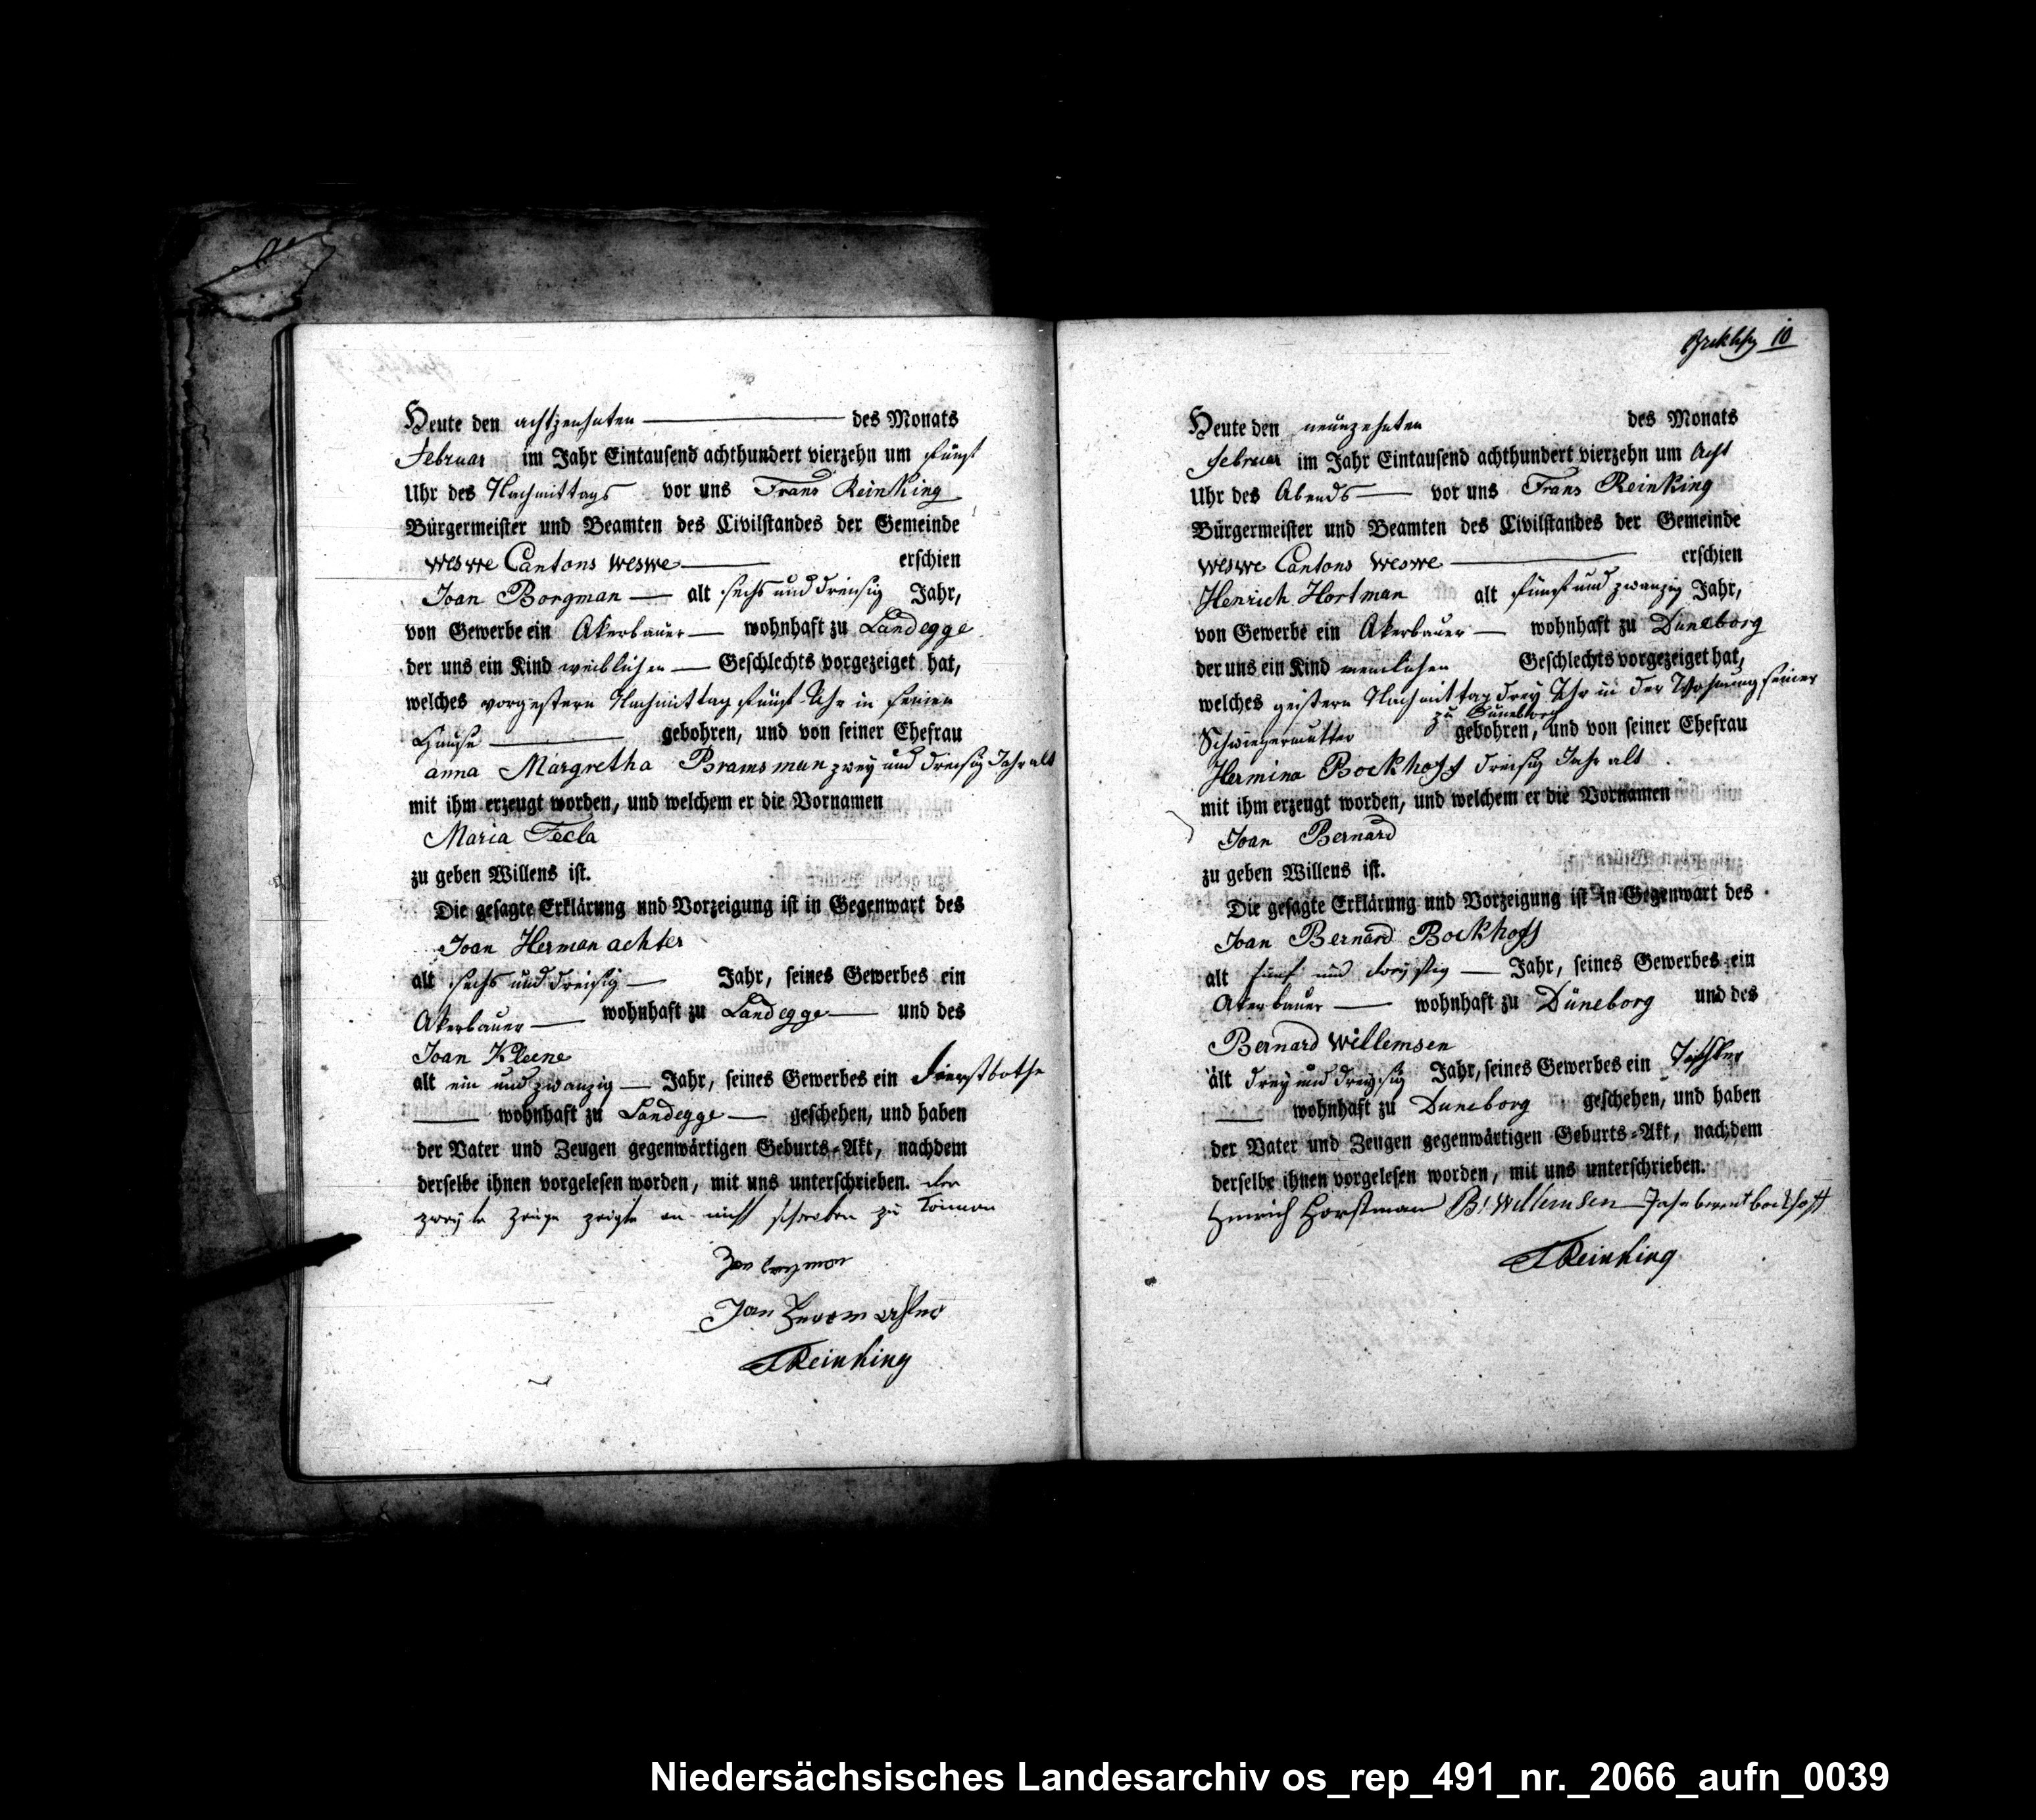 Heute den achtzehnten des Monats
Februar im Jahr Eintausend achthundert vierzehn um fünf
Uhr des Nachmittags vor uns Frans Reinking
Bürgermeister und Beamten des Civilstandes der Gemeinde
Weswe Cantons Weswe erschien
Joan Borgman alt sechs und dreisig Jahr,
von Gewerbe ein Akerbauer wohnhaft zu Landegge
der uns ein Kind weiblichen Geschlechts vorgezeiget hat,
welches vorgestern Nachmittag fünf Uhr in seinen
Hause gebohren, und von seiner Ehefrau
anna Margretha Bramsman zwey und dreisig Jahr alt
mit ihm erzeugt worden, und welchem er die Vornamen
Maria Tecla
zu geben Willens ist.
Die gesagte Erklärung und Vorzeigung ist in Gegenwart des
Joan Herman achter
alt sechs und dreisig Jahr, seines Gewerbes ein
Akerbauer wohnhaft zu Landegge und des
Joan Kleene
alt ein und zwanzig Jahr, seines Gewerbes ein Dienstbothe
wohnhaft zu Landegge geschehen, und haben
der Vater und Zeugen gegenwärtigen Geburts-Akt, nachdem
derselbe ihnen vorgelesen worden, mit uns unterschrieben. der
zweyte Zeuge zeigte an nicht schreiben zu können
Jan Herm achter
FReinking
10
Heute den neünzehnten des Monats
februar im Jahr Eintausend achthundert vierzehn um Acht
Uhr des Abends vor uns Frans Reinking
Bürgermeister und Beamten des Civilstandes der Gemeinde
Weswe Cantons Weswe erschien
Henrich Hortman alt fünf und zwanzig Jahr,
von Gewerbe ein Akerbauer wohnhaft zu Düneborg
der uns ein Kind menlichen Geschlechts vorgezeiget hat,
welches gestern Nachmittag drey Uhr in der Wohnung seiner
Schwiegermutter zu Düneborg gebohren, und von seiner Ehefrau
Hermina Bockhoff dreisig Jahr alt
mit ihm erzeugt worden, und welchem er die Vornamen
Joan Bernard
zu geben Willens ist.
Die gesagte Erklärung und Vorzeigung ist in Gegenwart des
Joan Bernard Bockhoff
alt fünf und dreyssig Jahr, seines Gewerbes ein
Akerbauer wohnhaft zu Düneborg und des
Bernard Willemsen
alt drey und dreysig Jahr, seines Gewerbes ein Tischler
wohnhaft zu Duneborg geschehen, und haben
der Vater und Zeugen gegenwärtigen Geburts-Akt, nachdem
derselbe ihnen vorgelesen worden, mit uns unterschrieben.
Hinrich Horstman B: Willemsen Jahn berent bockhoff
FReinking
Niedersächsisches Landesarchiv os_rep_491_nr._2066_aufn_0039